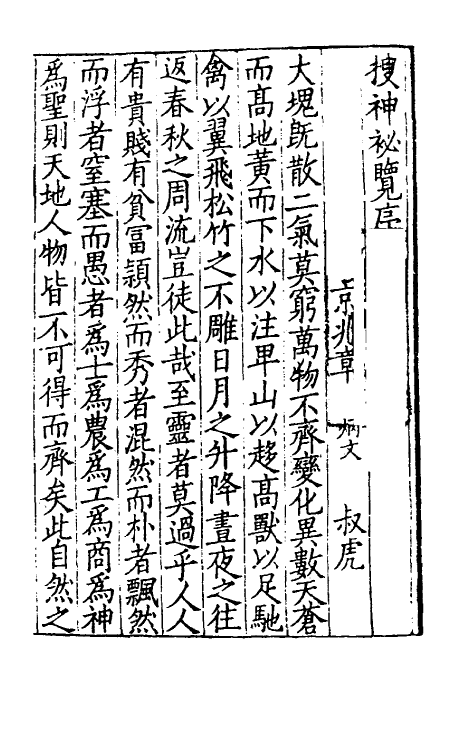 搜神祕覽序
京兆章 炳文 叔虎
大塊既散二氣莫窮萬物不齊變化異數天蒼
而髙地黄而下水以注卑山以趍髙獸以足馳
禽以翼飛松竹之不雕日月之升降晝夜之往
返春秋之周流豈徒此哉至靈者莫過乎人人
有貴賤有貧冨頴然而秀者混然而朴者飄然
而浮者窒塞而愚者爲士爲農爲工爲商爲神
爲聖則天地人物皆不可得而齊矣此自然之